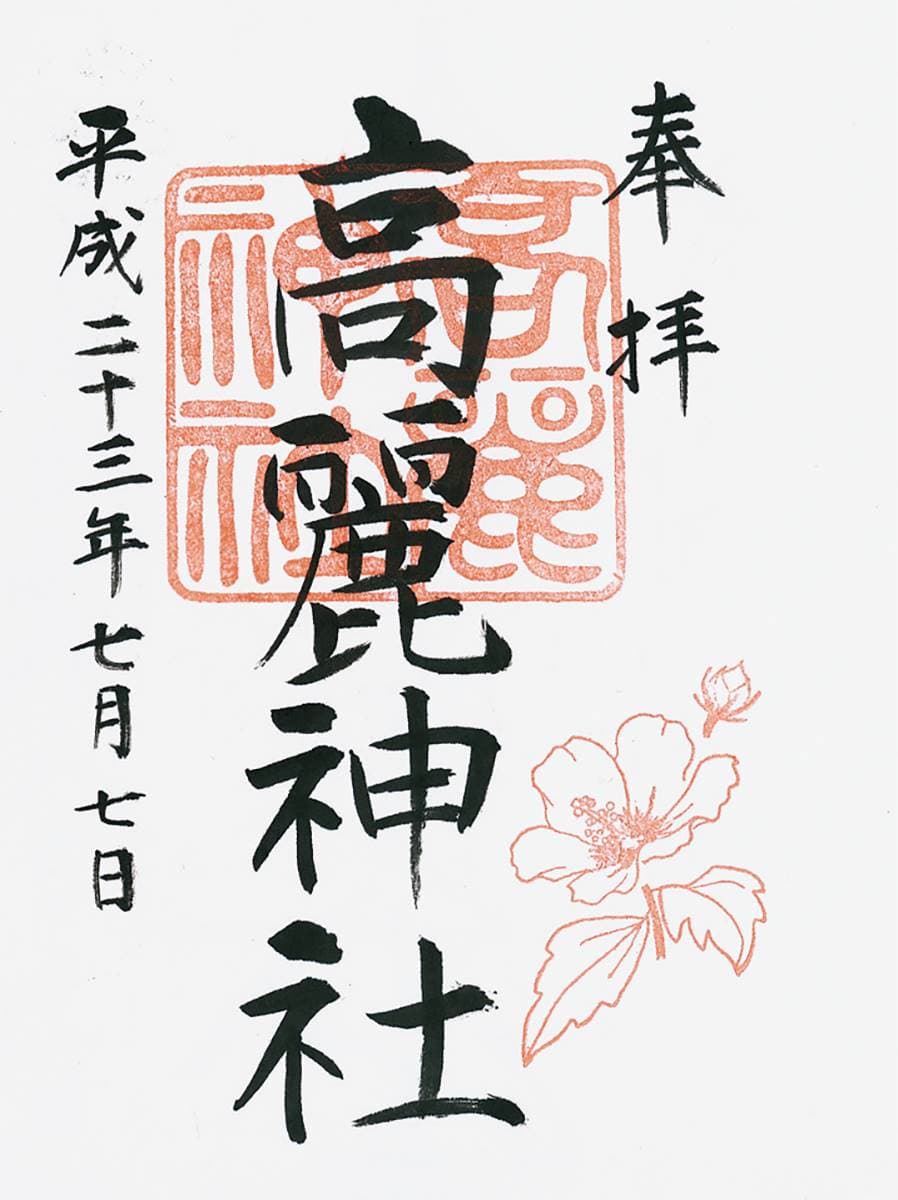 奉拝
高麗神社
平成二十三年七月七日
高麗
神社